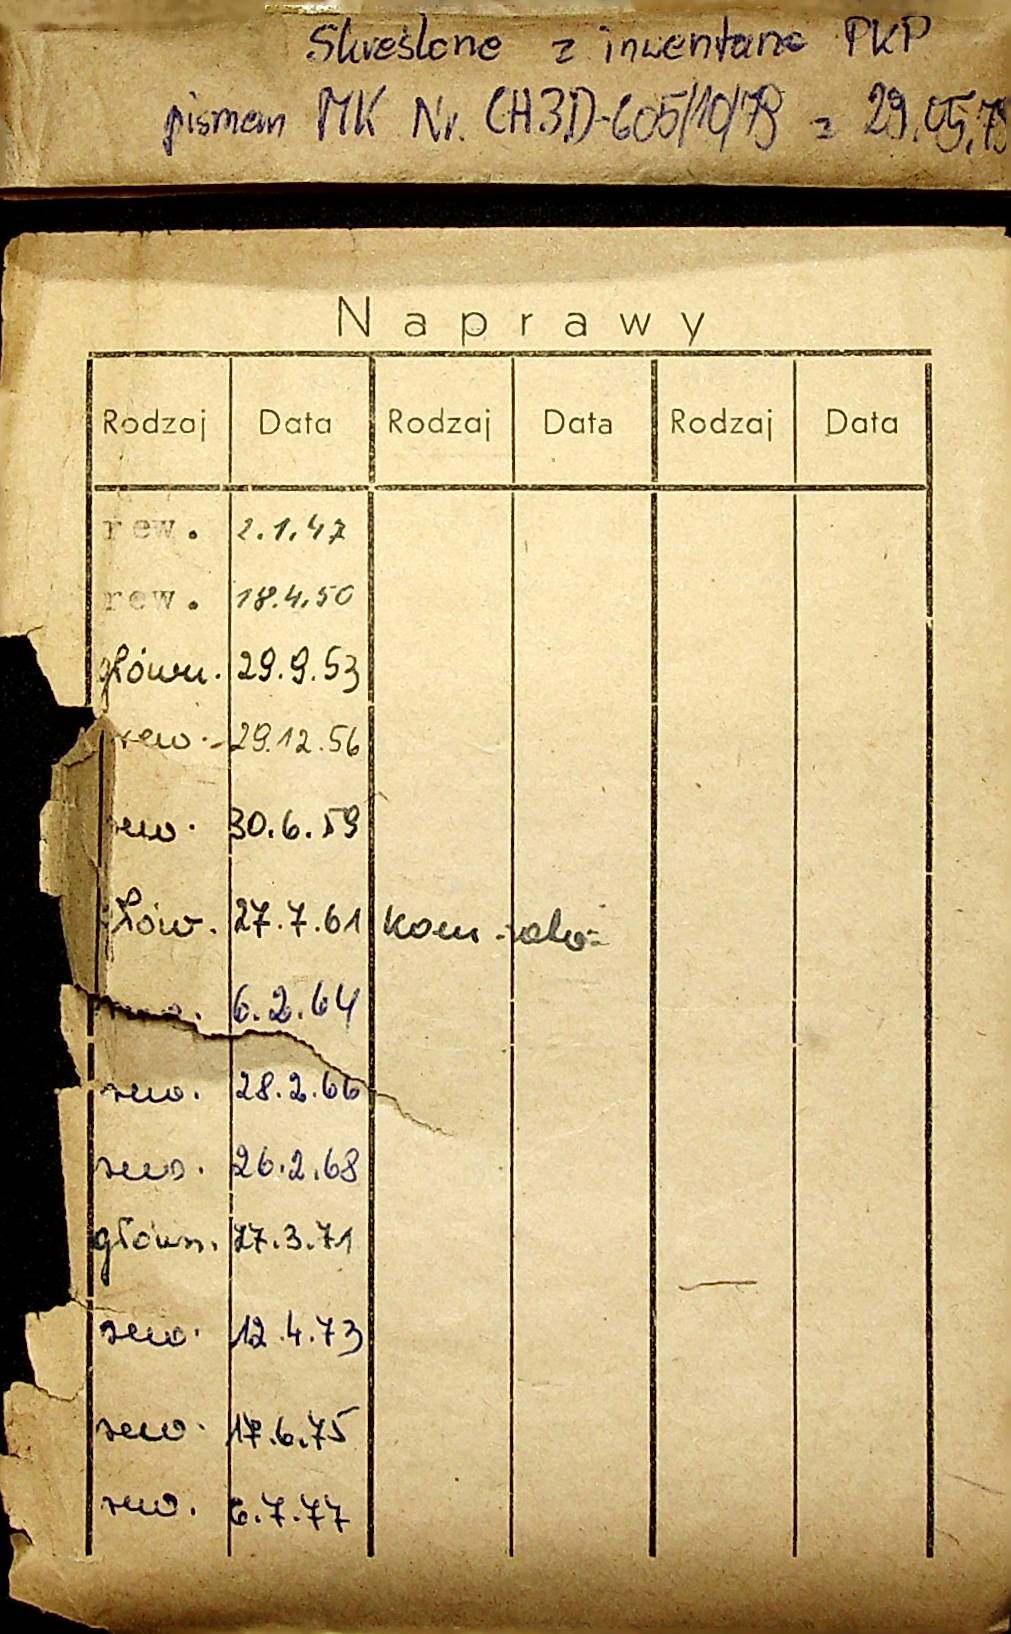 Skreślone z inwentarza PKP
pismem MK Nr. CH3D-605/10/79 z 29.05.79
Naprawy
Rodzaj Data Rodzaj Data Rodzaj Data
rew. 2.1.47
rew. 18.4.50
główn. 29.9.53
rew. 29.12.56
rew. 30.6.59
główn. 27.7.61
6.2.64
rew. 28.2.66
rew. 26.2.68
główn. 27.3.71
rew. 12.4.73
rew. 17.6.75
rew. 6.7.77